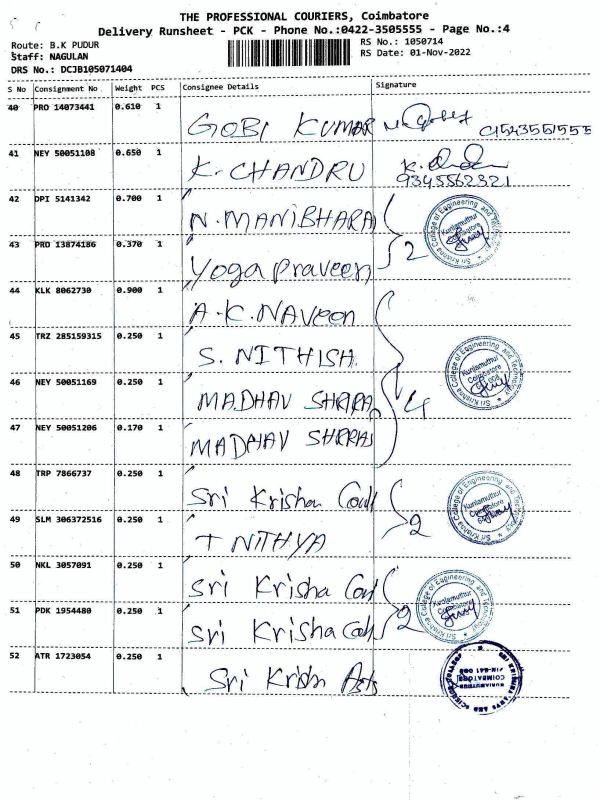 THE PROFESSIONAL COURIERS, Coimbatore
Delivery Runsheet - PCK - Phone No.:0422-3505555 - Page No.:4
Route: B.K PUDUR
Staff: NAGULAN
DRS No.: DCJB105071404
RS No.: 1050714
RS Date: 01-Nov-2022
S No Consignment No Weight PCS Consignee Details Signature
40 PRO 14073441 0.610 1 GOBI KUMAR
41 NEY 50051108 0.650 1 K. CHANDRU
9345562321
42 DPI 5141342 0.700 1 N. MANIBHARA
43 PRO 13874186 0.370 1 Yoga praveen 2
44 KLK 8062730 0.900 1 A.K.NAVeen
45 TRZ 285159315 0.250 1 S. NITHISH.
46 NEY 50051169 0.250 1 MADHAV 4
47 NEY 50051206 0.170 1 MADHAV
48 TRP 7866737 0.250 1 Sri Krishna 2
49 SLM 306372516 0.250 1 T NITHYA
50 NKL 3057091 0.250 1 Sri Krisha
51 PDK 1954480 0.250 1 Sri Krisha 2
52 ATR 1723054 0.250 1 Sri Krishn Arts
Sri Krishna College of Engineering and Technology
Kuniamuthur
Coimbatore
Sri Krishna College of Engineering and Technology
Kuniamuthur
Coimbatore
Sri Krishna College of Engineering and Technology
Kuniamuthur
Sri Krishna College of Engineering and Technology
Kuniamuthur
Coimbatore
SRI KRISHNA ARTS AND SCIENCE COLLEGE
KUNIAMUTHUR
COIMBATORE
PIN-641 008